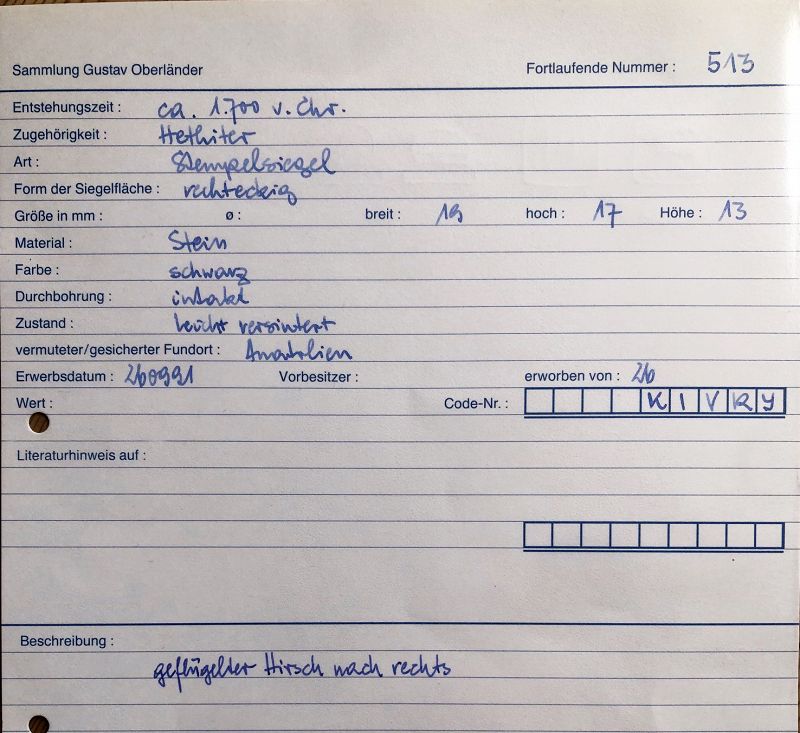 Sammlung Gustav Oberländer Fortlaufende Nummer : 513
Entstehungszeit : ca. 1.700 v. Chr.
Zugehörigkeit : Hethiter
Art : Stempelsiegel
Form der Siegelfläche : rechteckig
Größe in mm : ø : breit : 19 hoch : 17 Höhe : 13
Material : Stein
Farbe : schwarz
Durchbohrung : intakt
Zustand : leicht versintert
vermuteter/gesicherter Fundort : Anatolien
Erwerbsdatum : 260991 Vorbesitzer : erworben von : 26
Wert : Code-Nr. : K I V R Y
Literaturhinweis auf :
Beschreibung :
geflügelter Hirsch nach rechts